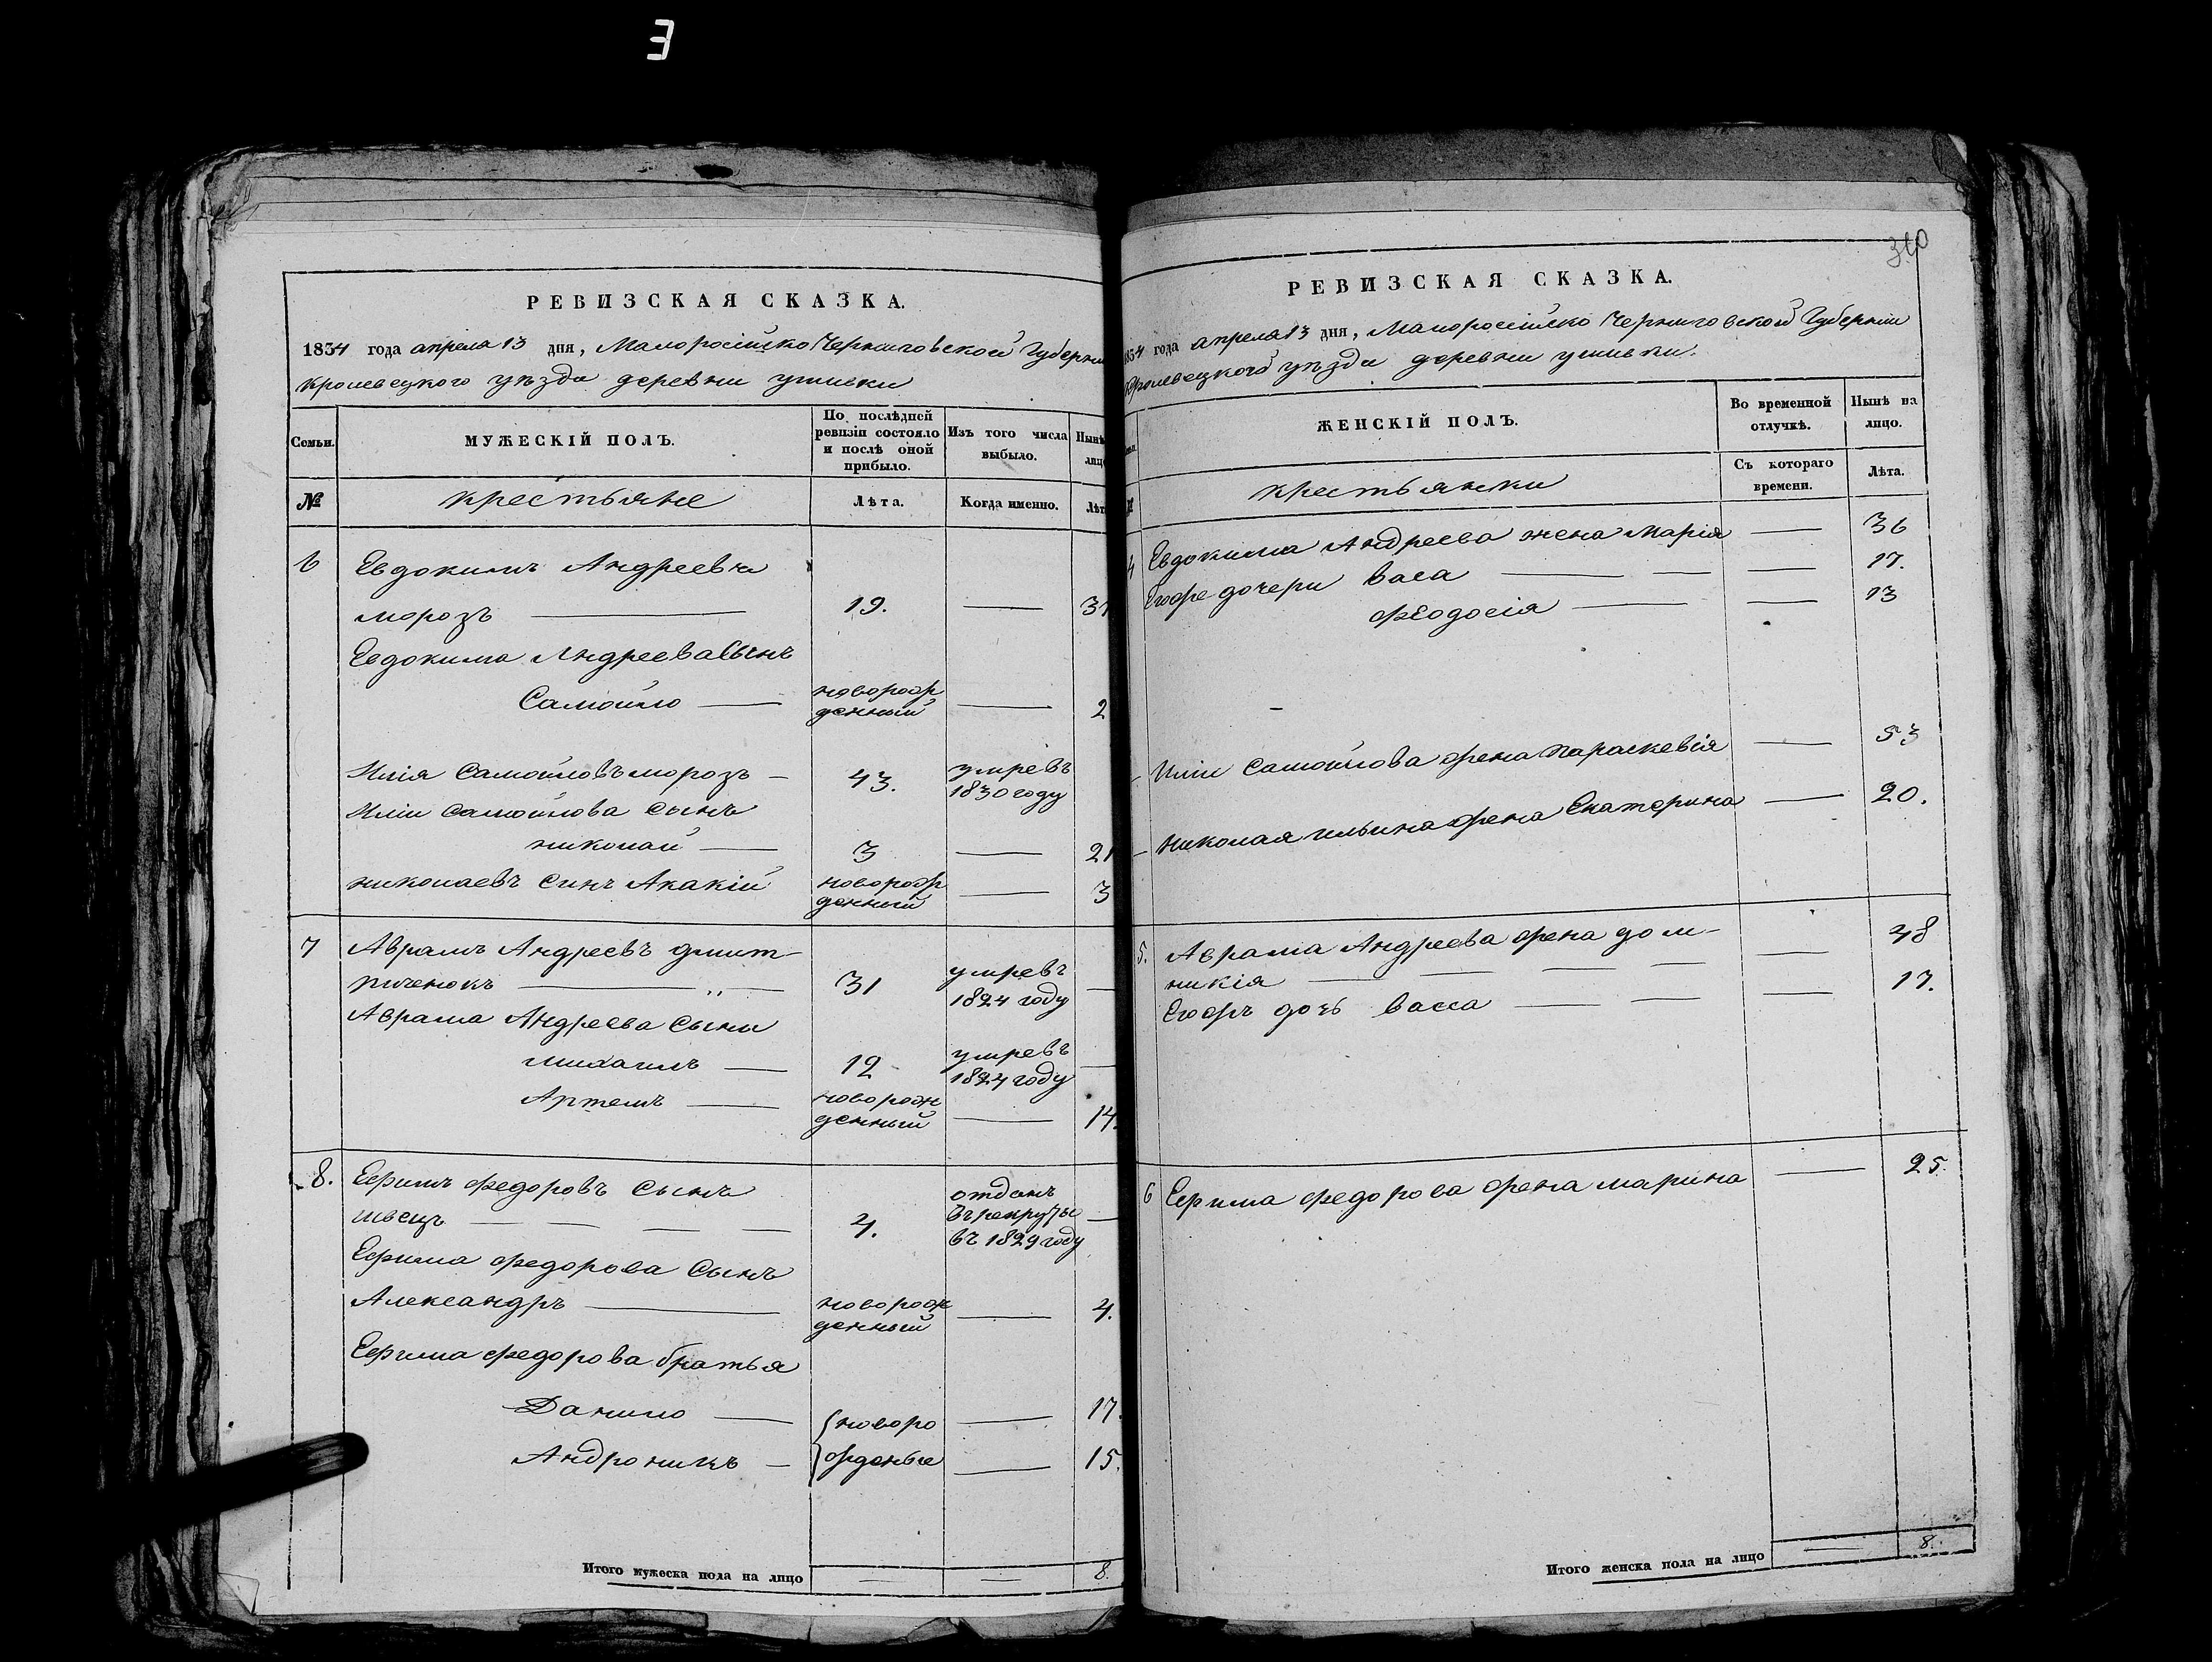 РЕВИЗСКАЯ СКАЗКА.
1834 года апреля 13 дня, Малоросійско Черниговской Губерни
Кролевецкого уѣзда деревни
Семьи.
МУЖЕСКІЙ ПОЛЪ.
По послѣдней ревизіи состояло и послѣ оной прибыло.
Изъ того числа выбыло.
Нынѣ лицо
№
крестьяне
Лѣта.
Когда именно.
Лѣт
6
Евдокимъ Андреевъ
морозъ — 19. —
Евдокима Андреева Сынъ
Самойло — новорож
денный — 2
Илія Самойловъ морозъ — 43. умре въ
1830 году
Иліи Самойлова Сынъ
николай — 3 — 21
николаевъ Синъ Акакій новорож
денный — 3
7 Аврамъ Андреевъ дмит-
риченокъ — 31 умре въ
1824 году —
Аврама Андреева Сыны
михаилъ — 12 умре въ
1824 году —
Артемъ — новорож
денный — 14.
8. Ефимъ федоровъ Сынъ
швецъ — — — — 4. отданъ
въ рекруты
въ 1829 году —
Ефима федорова Сынъ
Александръ — новорож
денный — 4.
Ефима федорова братья
Данило — новоро — 17.
Андроникъ — жденые — 15.
Итого мужеска пола на лицо — — 8.
310
РЕВИЗСКАЯ СКАЗКА.
1834 года апреля 13 дня, Малоросійско Черниговской Губерніи
Кролевецкого уѣзда деревни
ЖЕНСКІЙ ПОЛЪ.
Во временной отлучкѣ.
Нынѣ на лицо.
крестьянки
Съ котораго времени.
Лѣта.
4 Евдокима Андреева жена Марія — 36
Егоже дочери васа — — — 17.
феодосія — — 13
Иліи Самойлова жена Параскевія — 53
Николая ильина жена Екатерина — 20.
5. Аврама Андреева жена дом-
никія — — — — — 48
Егожъ дочь васса — — — 17.
6 Ефима федорова жена марина — 25.
Итого женска пола на лицо — 8.